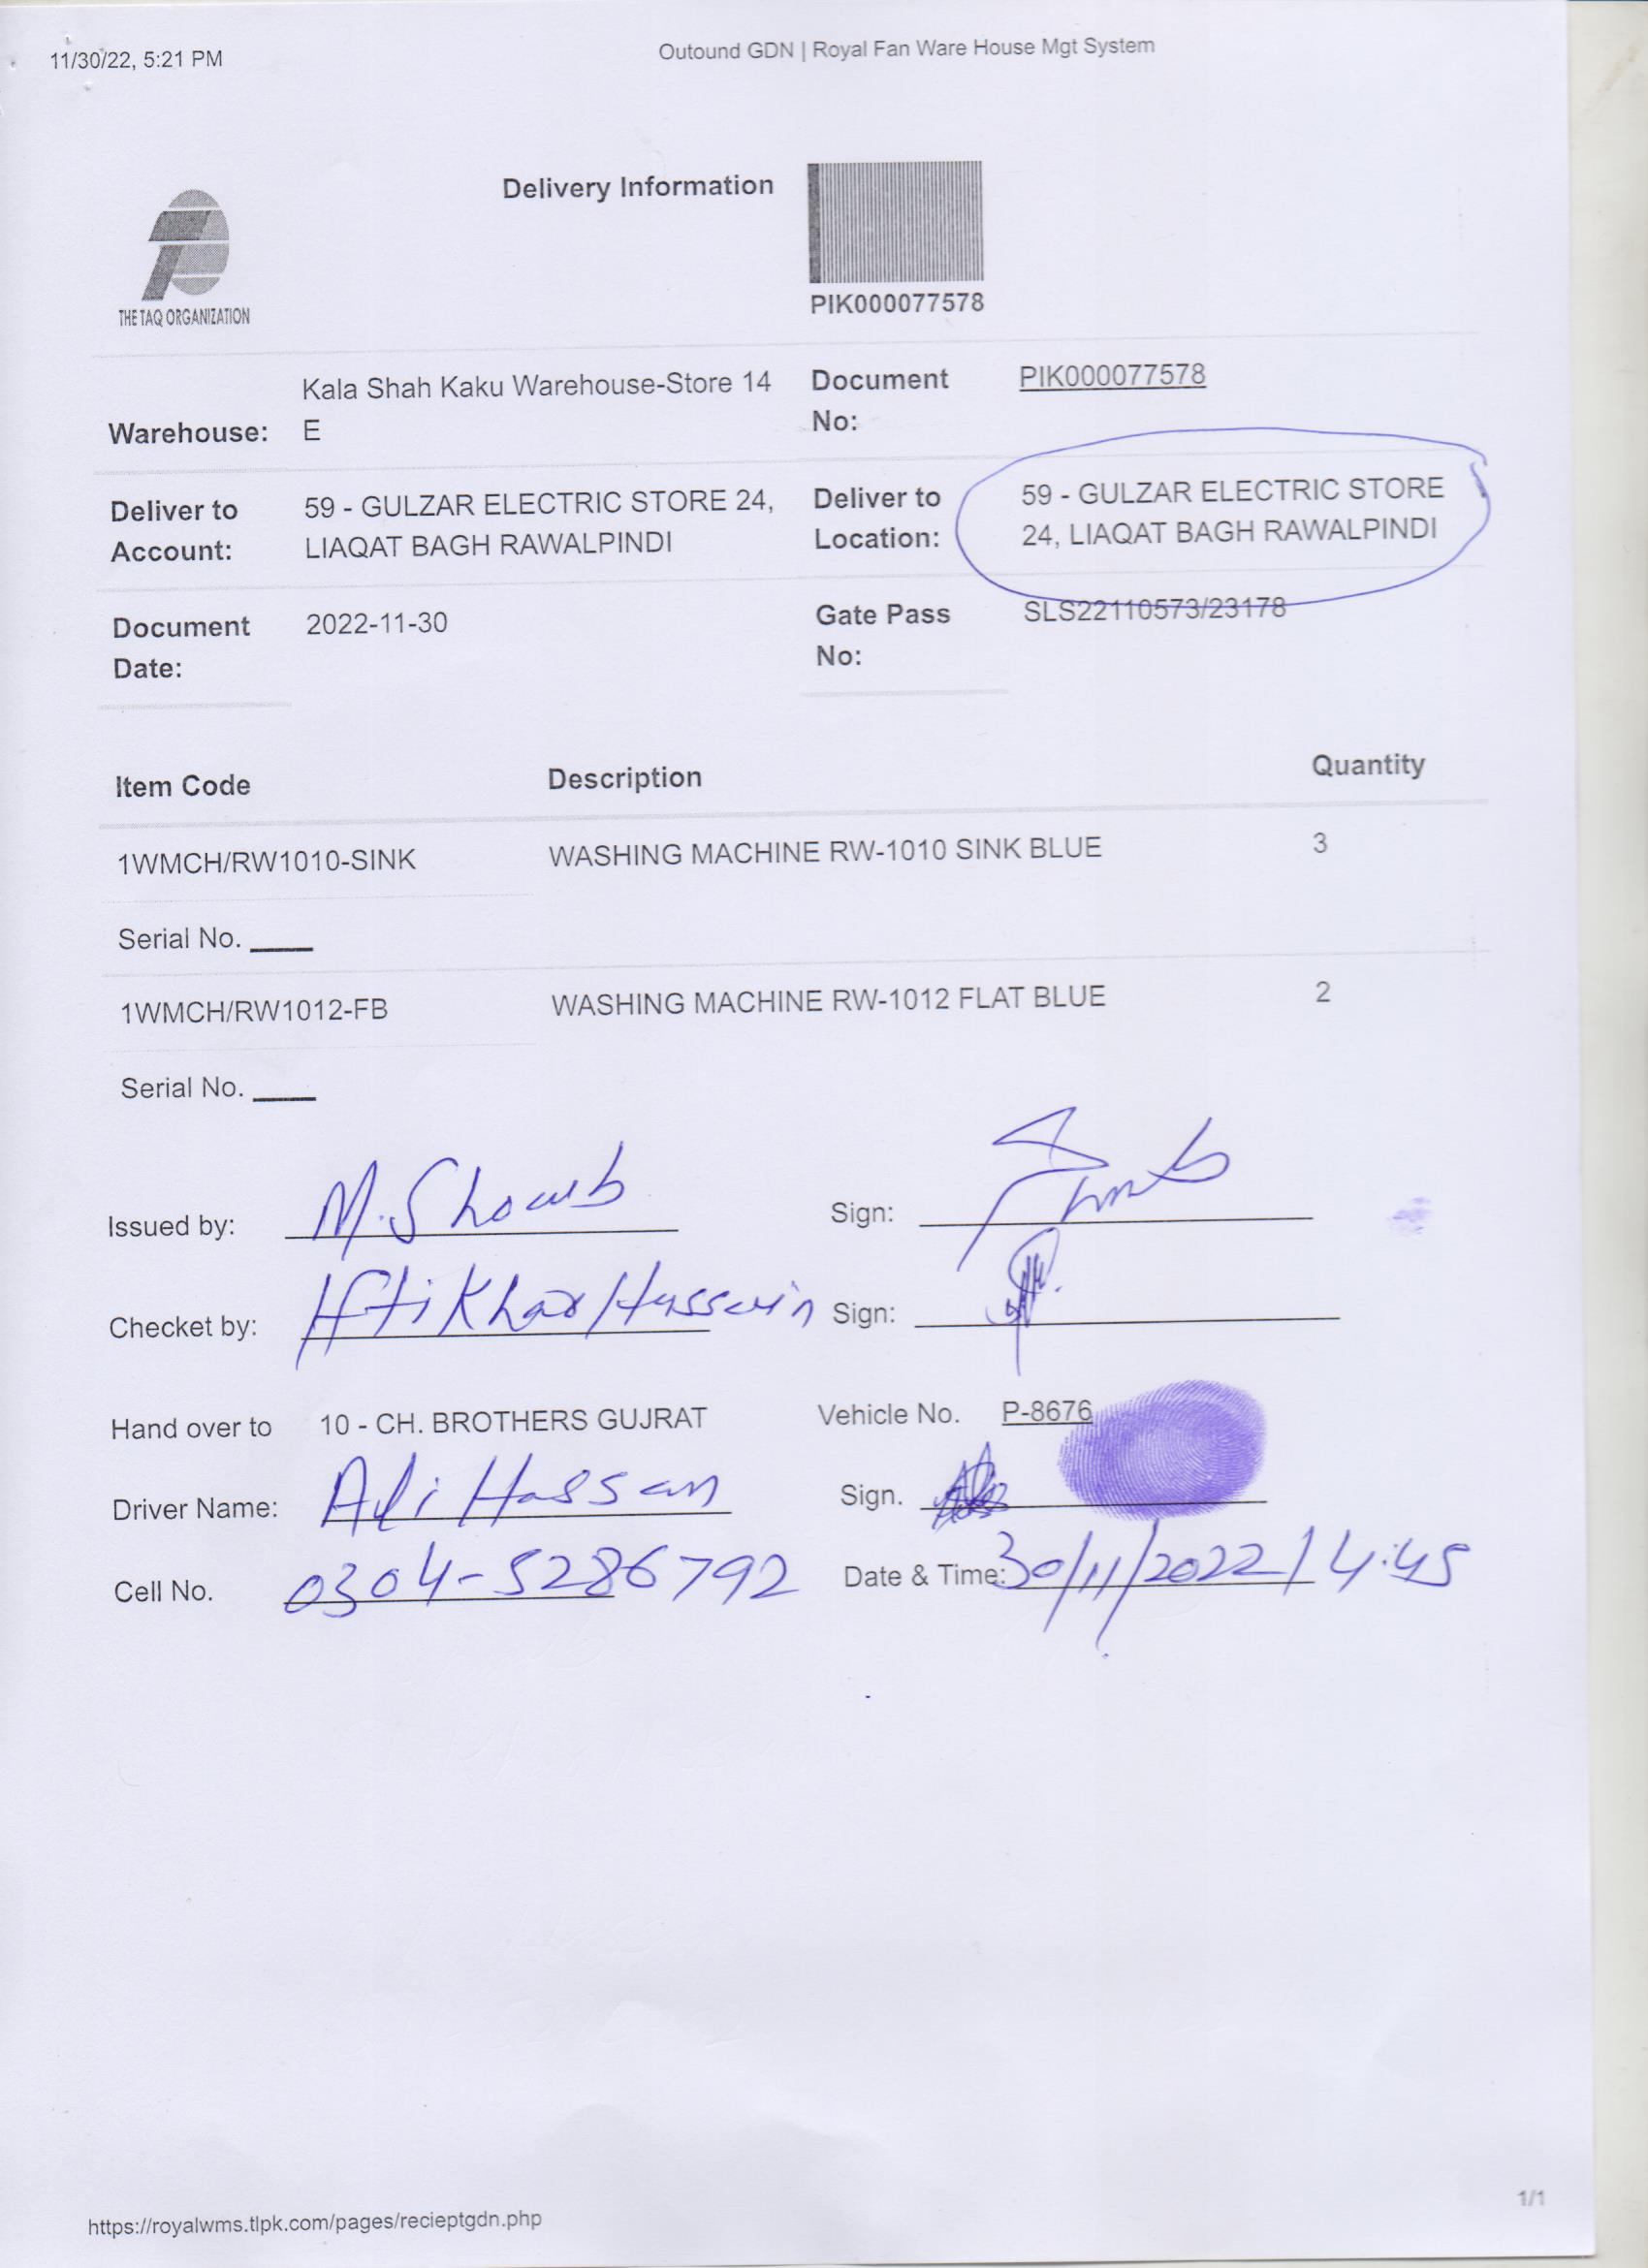 11/30/22, 5:21 PM
Outound GDN | Royal Fan Ware House Mgt System
THE TAQ ORGANIZATION
Delivery Information
PIK000077578
Warehouse: Kala Shah Kaku Warehouse-Store 14
E
Document
No: PIK000077578
Deliver to
Account: 59 - GULZAR ELECTRIC STORE 24,
LIAQAT BAGH RAWALPINDI
Deliver to
Location: 59 - GULZAR ELECTRIC STORE
24, LIAQAT BAGH RAWALPINDI
Document
Date: 2022-11-30
Gate Pass
No: SLS22110573/23178
Item Code Description Quantity
1WMCH/RW1010-SINK WASHING MACHINE RW-1010 SINK BLUE 3
Serial No.
1WMCH/RW1012-FB WASHING MACHINE RW-1012 FLAT BLUE 2
Serial No.
Issued by: M. Sign:
Checket by: Iftikhar Hussain Sign:
Hand over to 10 - CH. BROTHERS GUJRAT Vehicle No. P-8676
Driver Name: Ali Hassan Sign.
Cell No. 0304-5286792 Date & Time: 30/11/2022 / 4:45
https://royalwms.tlpk.com/pages/recieptgdn.php
1/1